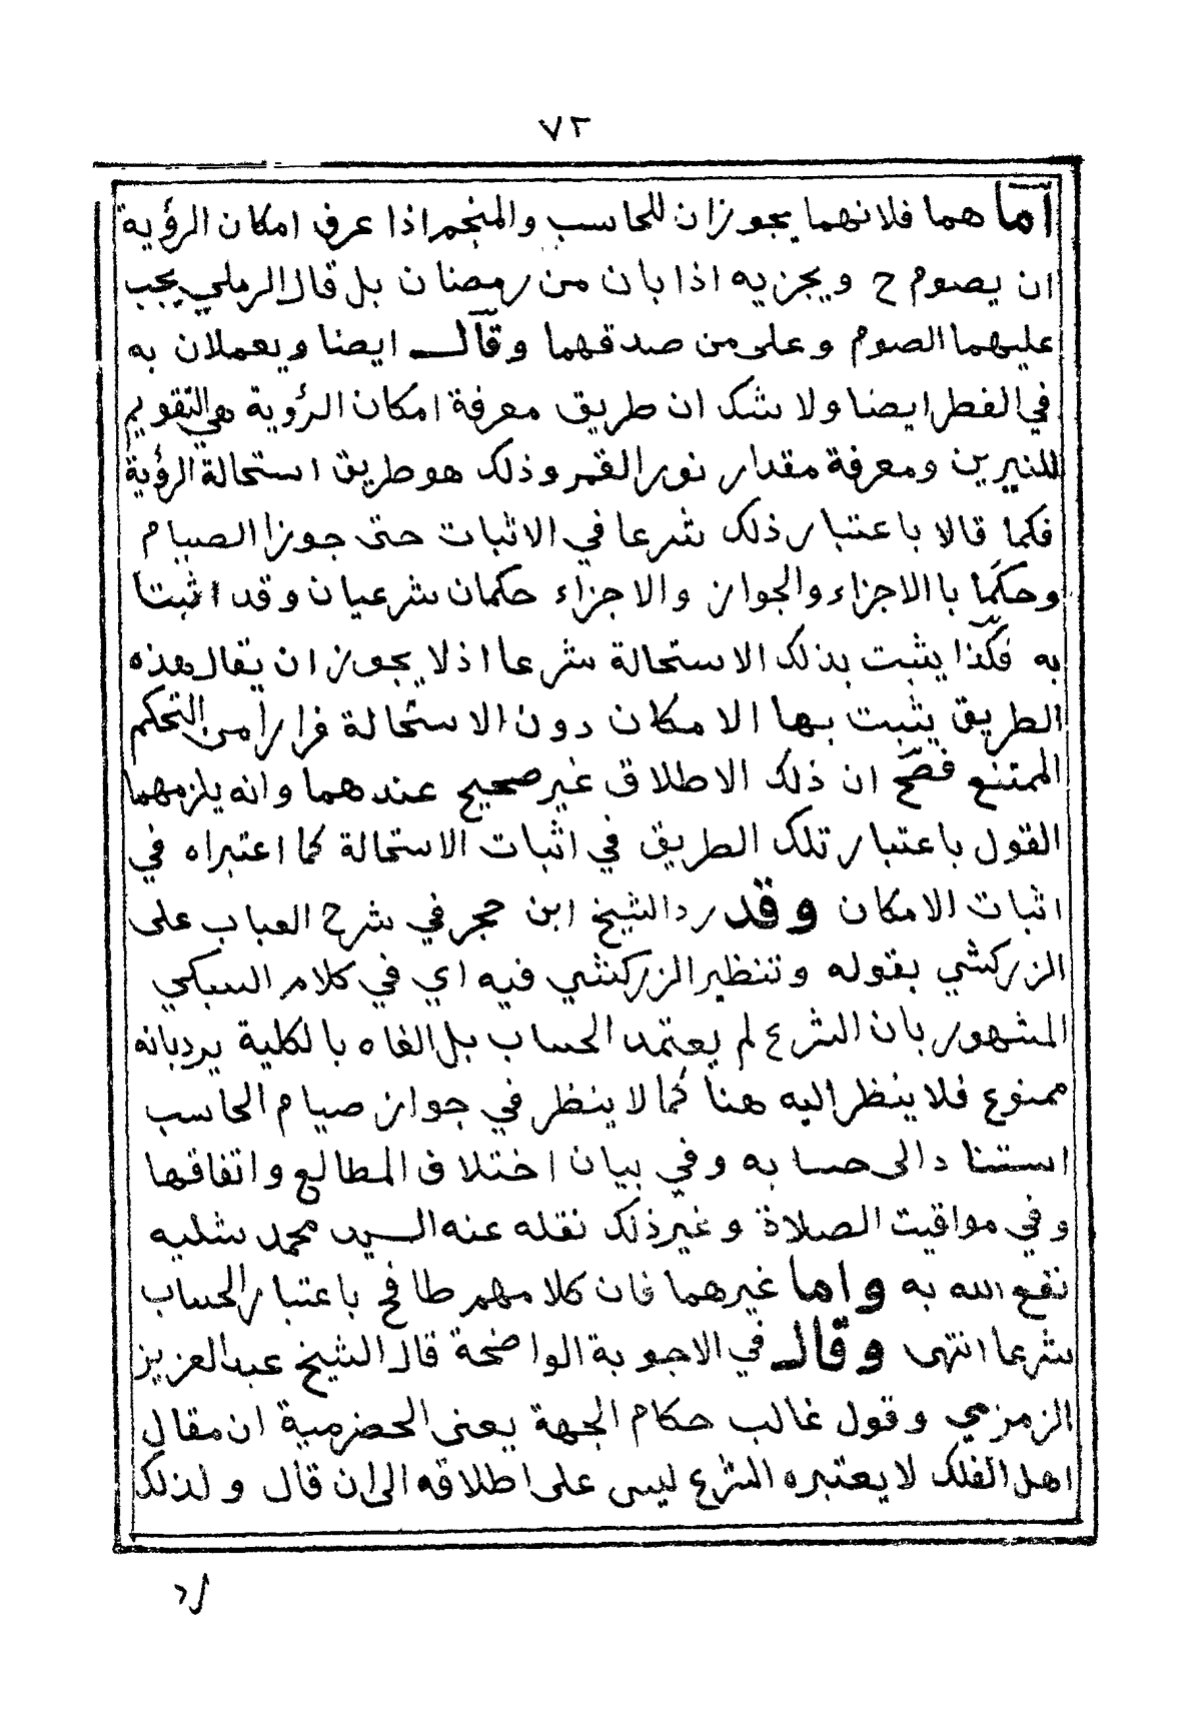 ٧٢
أما هما فلانهما يجوزان للحاسب والمنجم اذا عرف امكان الرؤية
ان يصوم ح ويجزيه اذا بان من رمضان بل قال الرملي يجب
عليهما الصوم وعلى من صدقهما وقال ايضا ويعملان به
في الفطر ايضا ولا شك ان طريق معرفة امكان الرؤية هي التقويم
للنيرين ومعرفة مقدار نور القمر وذلك هو طريق استحالة الرؤية
فكما قالا باعتبار ذلك شرعا في الاثبات حتى جوزا الصيام
وحكما باالاجزاء والجواز والاجزاء حكمان شرعيان وقد اثبتا
به فكذا يثبت بذلك الاستحالة شرعا اذ لا يجوز ان يقال هذه
الطريق يثبت بها الامكان دون الاستحالة فرارا من التحكم
الممتنع فصح ان ذلك الاطلاق غير صحيح عندهما وانه يلزمهما
القول باعتبار تلك الطريق في اثبات الاستحالة كما اعتبراه في
اثبات الامكان وقد رد الشيخ ابن حجر في شرح العباب على
الزركشي بقوله وتنظير الزركشي فيه اي في كلام السبكي
المشهور بان الشرع لم يعتمد الحساب بل الغاه بالكلية يرد بانه
ممنوع فلا ينظر اليه هنا كما لا ينظر في جواز صيام الحاسب
استنادا الى حسابه وفي بيان اختلاف المطالع واتفاقها
وفي مواقيت الصلاة وغير ذلك نقله عنه السيد محمد شليه
نفع الله به واما غيرهما فان كلامهم طافح باعتبار الحساب
شرعا انتهى وقال في الاجوبة الواضحة قال الشيخ عبد العزيز
الزمزمي وقول غالب حكام الجهة يعنى الحضرمية ان مقال
اهل الفلك لا يعتبره الشرع ليس على اطلاقه الى ان قال ولذلك